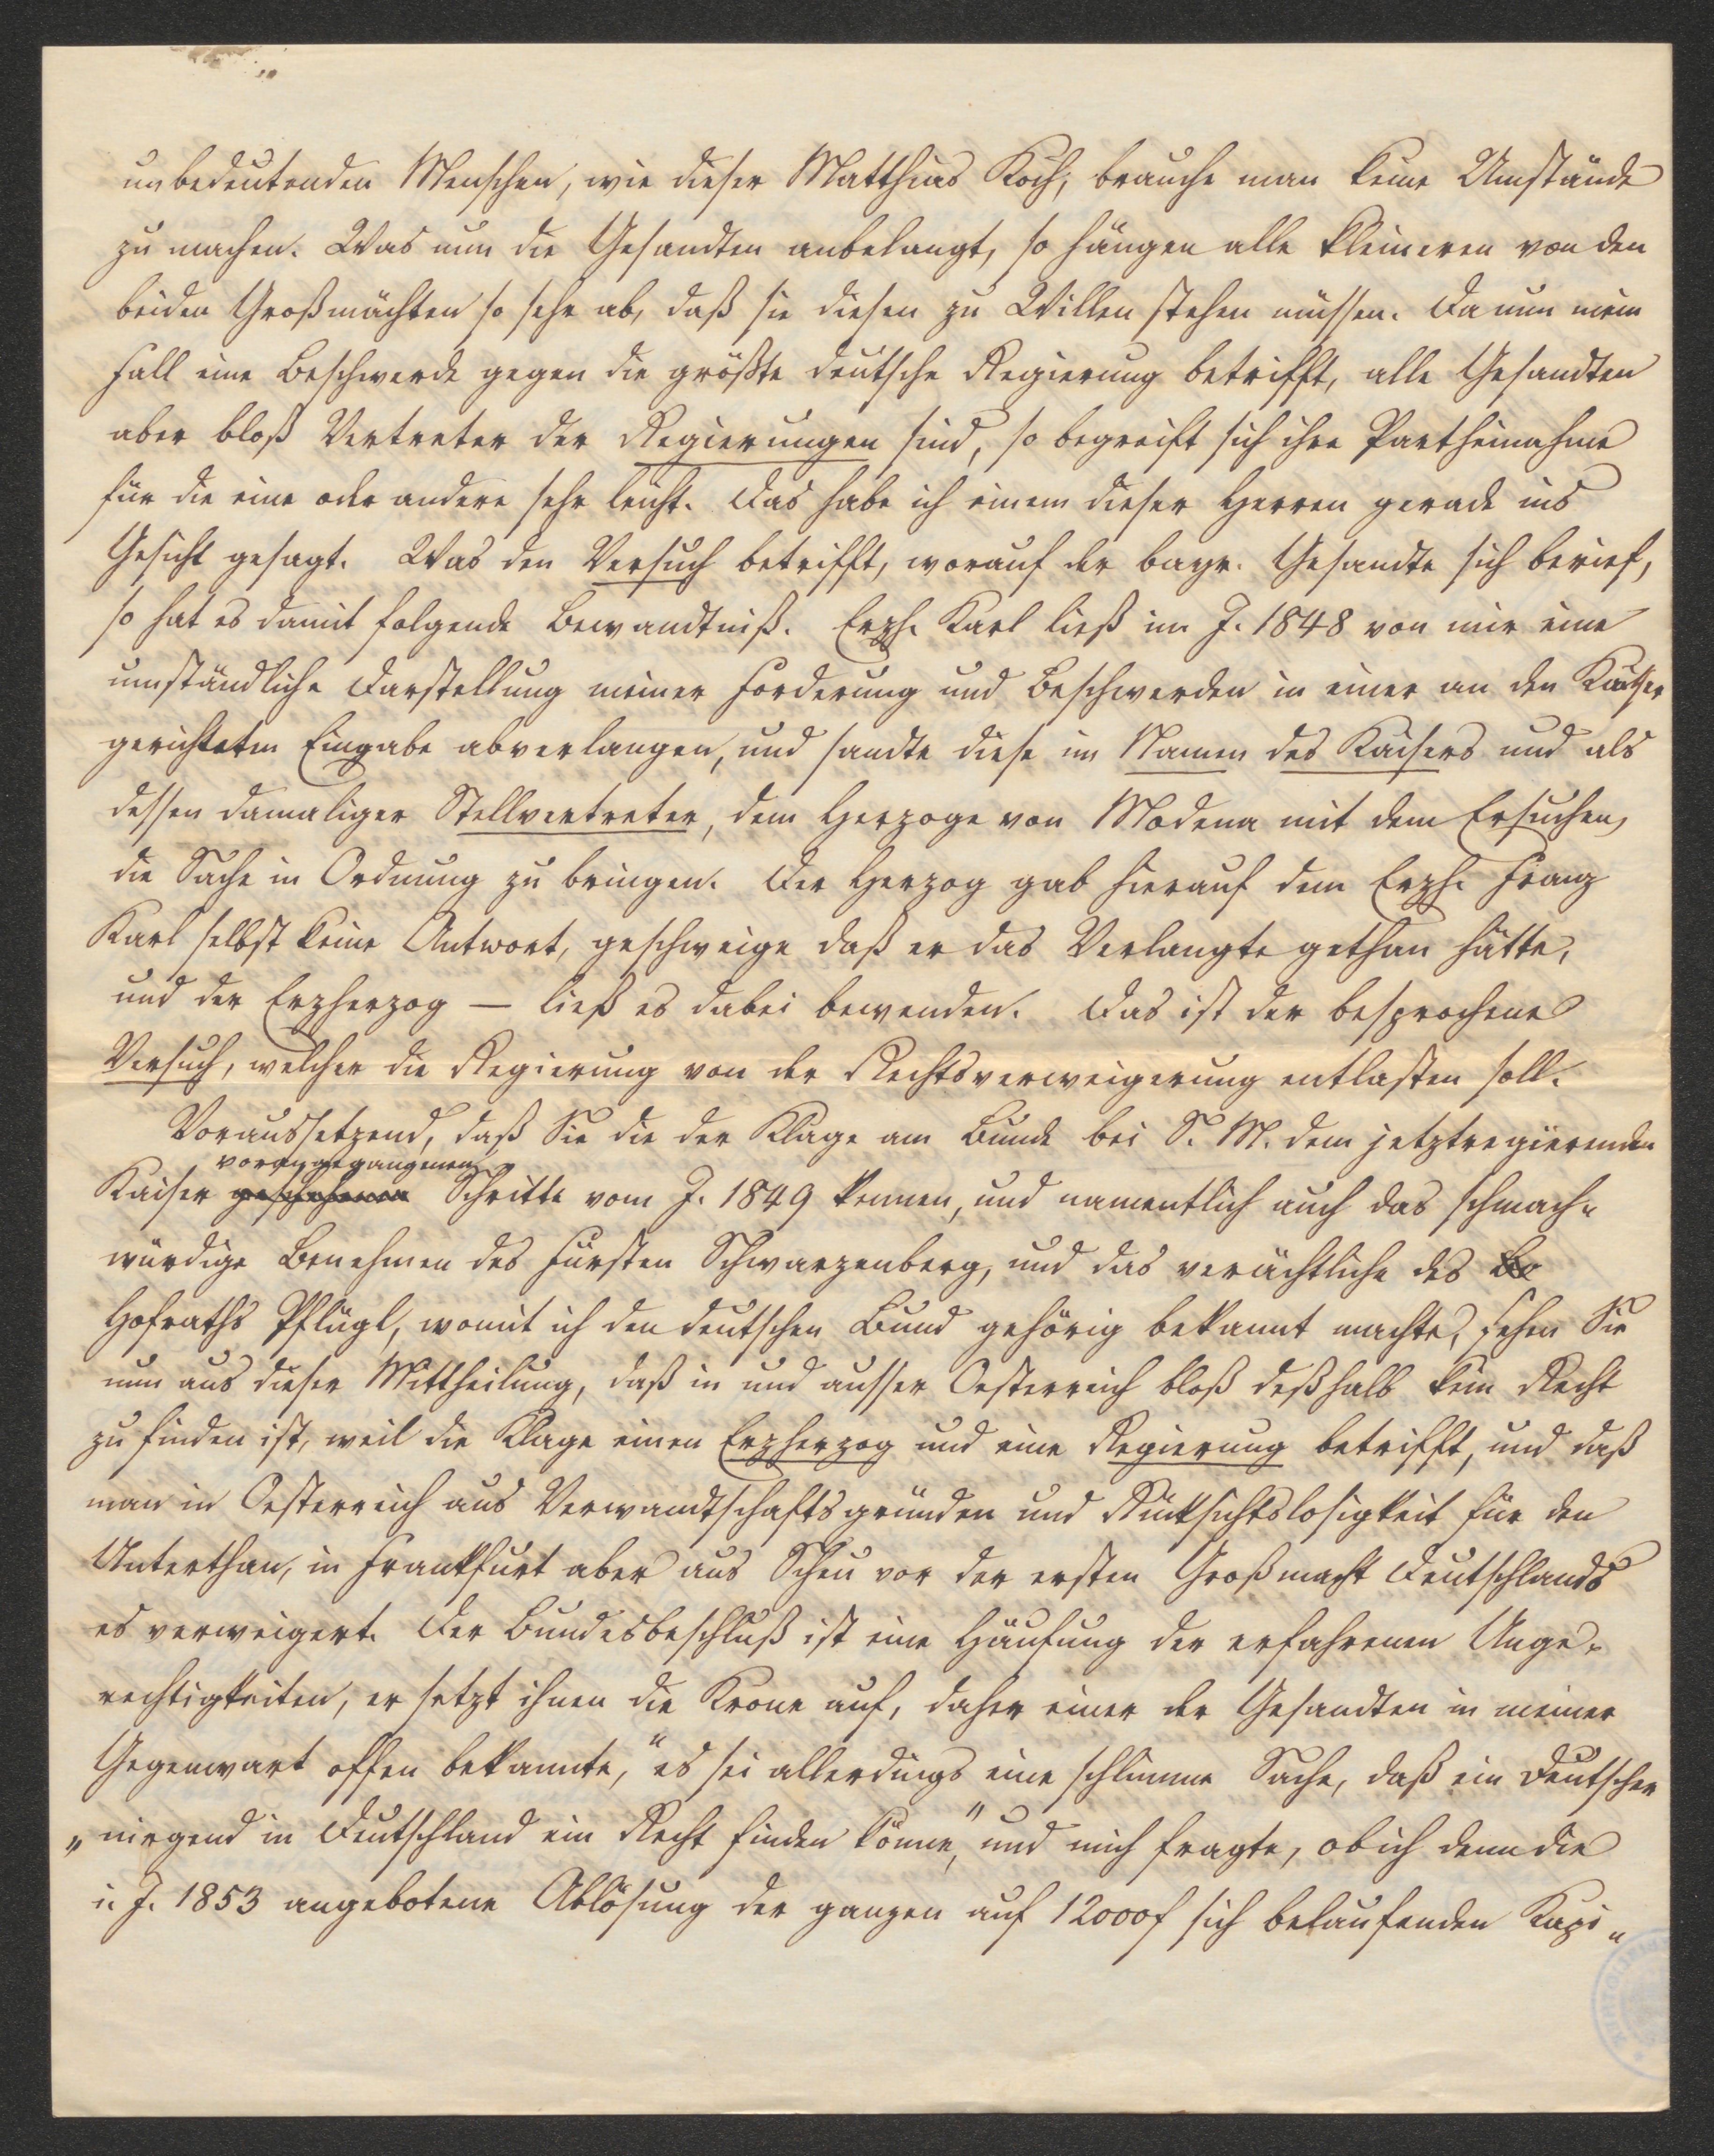 unbedeutenden Menschen, wie dieser Matthias Koch, brauche man keine Umstände
zu machen. Was nun die Gesandten anbelangt, so hängen alle kleineren von den
beiden Großmächten so sehr ab, daß sie diesen zu Willen stehen müssen. Da nun mein
Fall eine Beschwerde gegen die größte deutsche Regierung betrifft, alle Gesandten
aber bloß Vertreter der Regierungen sind, so begreift sich ihre Partheinahme
für die eine oder andere sehr leicht. Das habe ich einem dieser Herren gerade ins
Gesicht gesagt. Was den Versuch betrifft, worauf der bayr. Gesandte sich berief,
so hat es damit folgende Bewandtniß. Erzh. Karl ließ im J. 1848 von mir eine
umständliche Darstellung meiner Forderung und Beschwerden in einer an den Kaiser
gerichteten Eingabe abverlangen, und sandte diese im Namen des Kaisers und als
dessen damaliger Stellvertreter, dem Herzoge von Modena mit dem Ersuchen,
die Sache in Ordnung zu bringen. Der Herzog gab hierauf dem Erzh. Franz
Karl selbst keine Antwort, geschweige daß er das Verlangte gethan hätte,
und der Erzherzog — ließ es dabei bewenden. Das ist der besprochene
Versuch, welcher die Regierung von der Rechtsverweigerung entlasten soll.
Voraussetzend, daß Sie die der Klage am Bunde bei S. M. dem jetztregierenden
vorangegangenen
Kaiser geschehenen Schritte vom J. 1849 kennen, und namentlich auch das schmach-
würdige Benehmen des Fürsten Schwarzenberg, und das verächtliche des
Hofraths Pflügl, womit ich den deutschen Bund gehörig bekannt machte, sehen Sie
nun aus dieser Mittheilung, daß in und ausser Oesterreich bloß deßhalb kein Recht
zu finden ist, weil die Klage einen Erzherzog und eine Regierung betrifft, und daß
man in Oesterreich aus Verwandtschaftsgründen und Rücksichtslosigkeit für den
Unterthan, in Frankfurt aber aus Scheu vor der ersten Großmacht Deutschlands
es verweigert. Der Bundesbeschluß ist eine Häufung der erfahrenen Unge-
rechtigkeiten, er setzt ihnen die Krone auf, daher einer der Gesandten in meiner
Gegenwart offen bekannte, "es sei allerdings eine schlimme Sache, daß ein Deutscher
"nirgend in Deutschland ein Recht finden könne," und mich fragte, ob ich denn die
i. J. 1853 angebotene Ablösung der ganzen auf 12000f sich belaufenden Kapi-